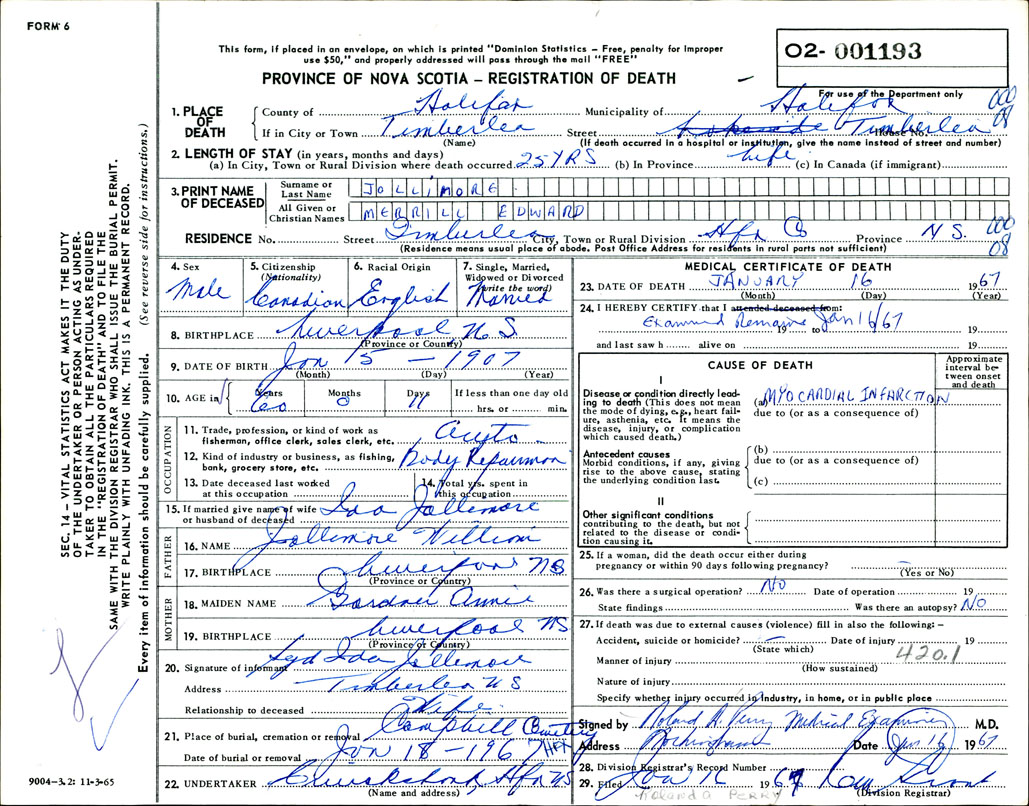 FORM 6
This form, if placed in an envelope, on which is printed "Dominion Statistics – Free, penalty for improper
use $50," and properly addressed will pass through the mail "FREE"
PROVINCE OF NOVA SCOTIA – REGISTRATION OF DEATH
02- 001193
For use of the Department only
000
08
1. PLACE OF DEATH
County of Halifax Municipality of Halifax
If in City or Town Timberlea Street Timberlea House No.
(Name) (If death occurred in a hospital or institution, give the name instead of street and number)
2. LENGTH OF STAY (in years, months and days)
(a) In City, Town or Rural Division where death occurred 25 YRS (b) In Province Life (c) In Canada (if immigrant)
3. PRINT NAME OF DECEASED
Surname or Last Name JOLLIMORE
All Given or Christian Names MERRILL EDWARD
RESIDENCE No. Street Timberlea City, Town or Rural Division Hfx Co Province N S.
000
08
(Residence means usual place of abode. Post Office Address for residents in rural parts not sufficient)
4. Sex Male
5. Citizenship (Nationality) Canadian
6. Racial Origin English
7. Single, Married, Widowed or Divorced (write the word) Married
8. BIRTHPLACE Liverpool N.S.
(Province or County)
9. DATE OF BIRTH Jan 5 – 1907
(Month) (Day) (Year)
10. AGE in Years 60 Months 0 Days 11 If less than one day old hrs. or min.
OCCUPATION
11. Trade, profession, or kind of work as fisherman, office clerk, sales clerk, etc. Auto
12. Kind of industry or business, as fishing, bank, grocery store, etc. Body Repairman
13. Date deceased last worked at this occupation
14. Total yrs. spent in this occupation
15. If married give name of wife or husband of deceased Ida Jollemore
FATHER
16. NAME Jollemore William
17. BIRTHPLACE Liverpool NS
(Province or Country)
MOTHER
18. MAIDEN NAME Gardner Annie
19. BIRTHPLACE Liverpool NS
(Province or Country)
20. Signature of informant Sgd Ida Jollemore
Address Timberlea N S
Relationship to deceased Wife
21. Place of burial, cremation or removal Campbell Cemetery
Date of burial or removal Jan 18 – 1967 HFX
22. UNDERTAKER Cruikshank Hfx NS
(Name and address)
MEDICAL CERTIFICATE OF DEATH
23. DATE OF DEATH JANUARY 16 1967
(Month) (Day) (Year)
24. I HEREBY CERTIFY that I attended deceased from:
Examined Remains Jan 16/67 19
and last saw h alive on 19
CAUSE OF DEATH
Approximate interval between onset and death
I
Disease or condition directly leading to death (This does not mean the mode of dying, e.g., heart failure, asthenia, etc. It means the disease, injury, or complication which caused death.)
(a) MYOCARDIAL INFARCTION
due to (or as a consequence of)
Antecedent causes
Morbid conditions, if any, giving rise to the above cause, stating the underlying condition last.
(b)
due to (or as a consequence of)
(c)
II
Other significant conditions
contributing to the death, but not related to the disease or condition causing it.
25. If a woman, did the death occur either during
pregnancy or within 90 days following pregnancy? –
(Yes or No)
26. Was there a surgical operation? NO Date of operation 19
State findings Was there an autopsy? NO
27. If death was due to external causes (violence) fill in also the following: –
Accident, suicide or homicide? – Date of injury 19
(State which)
420.1
Manner of injury
(How sustained)
Nature of injury
Specify whether injury occurred in industry, in home, or in public place
Signed by Roland A. Perry Medical Examiner M.D.
Address Rockingham Date Jan 16 1967
28. Division Registrar's Record Number
29. Filed Jan 16 1967
(Division Registrar)
ROLAND A PERRY
SEC. 14 – VITAL STATISTICS ACT MAKES IT THE DUTY
OF THE UNDERTAKER OR PERSON ACTING AS UNDER-
TAKER TO OBTAIN ALL THE PARTICULARS REQUIRED
IN THE "REGISTRATION OF DEATH" AND TO FILE THE
SAME WITH THE DIVISION REGISTRAR WHO SHALL ISSUE THE BURIAL PERMIT.
WRITE PLAINLY WITH UNFADING INK. THIS IS A PERMANENT RECORD.
Every item of information should be carefully supplied. (See reverse side for instructions.)
9004-3.2: 11-3-65